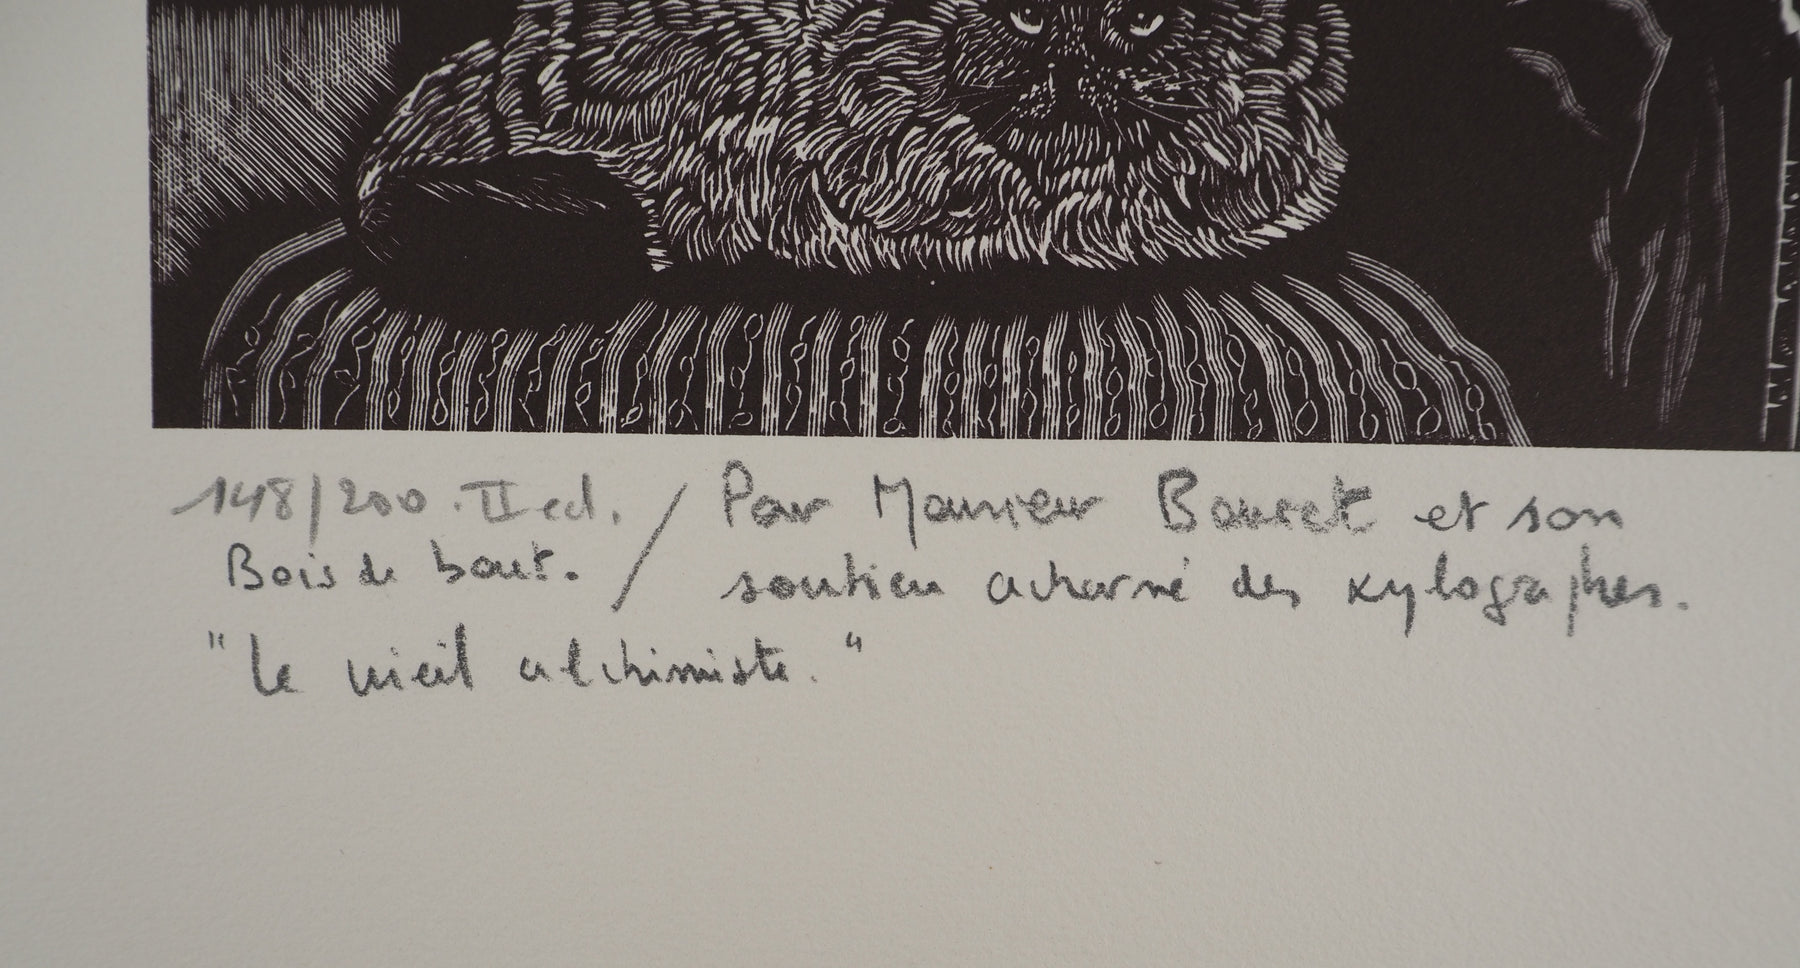 148/200. II ed. / Pour Monsieur Bouret et son
Bois de bout. / soutien acharné des xylographes.
"Le vieil alchimiste."